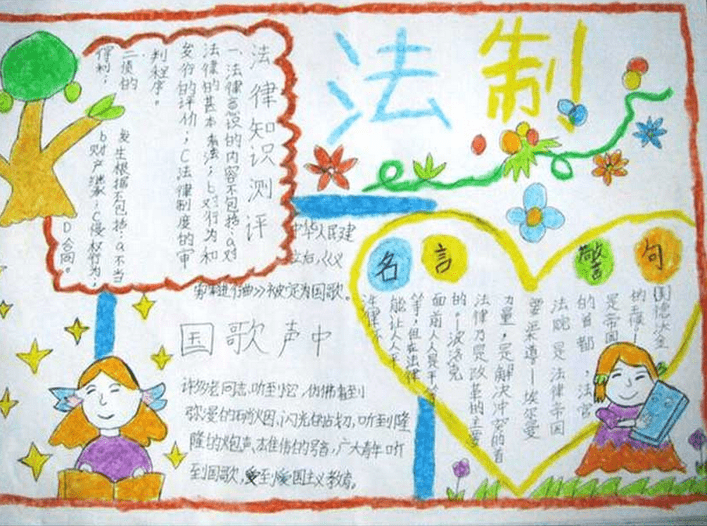 法制
法律知识测评
一、法律意识的内容不包括：a对
法律的基本看法；b对行为和
发行的评价；C法律制度的审
判程序。
二、债的
发生根据不包括：a不当
得利；
b财产继承；C侵权行为；
D合同。
中华人民建
立后，《义
勇军进行曲》被定为国歌。
国歌声中
许多老同志，听到它，仿拂看到
弥漫的硝烟，闪光的战刀，听到隆
隆的炮声，雄伟的号音，广大青年听
到国歌，受到爱国主义教育。
名言警句
法院是法律帝国
的首都，法官
是帝国
法律乃是改革的主要
力量，是解决冲突的首
要渠道——埃尔曼
面前人人是平
等，但在法律
能让人人平